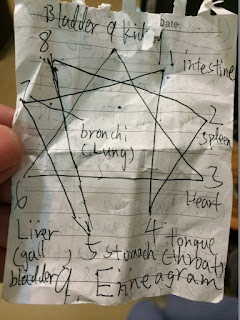 Date
Bladder 9 Kid
8 1
intestine
7 2
bronchi
(Lung) Spleen
3
6 Heart
Liver 4 tongue
(gall , 5 stomach (throat)
bladder) 9. Enneagram